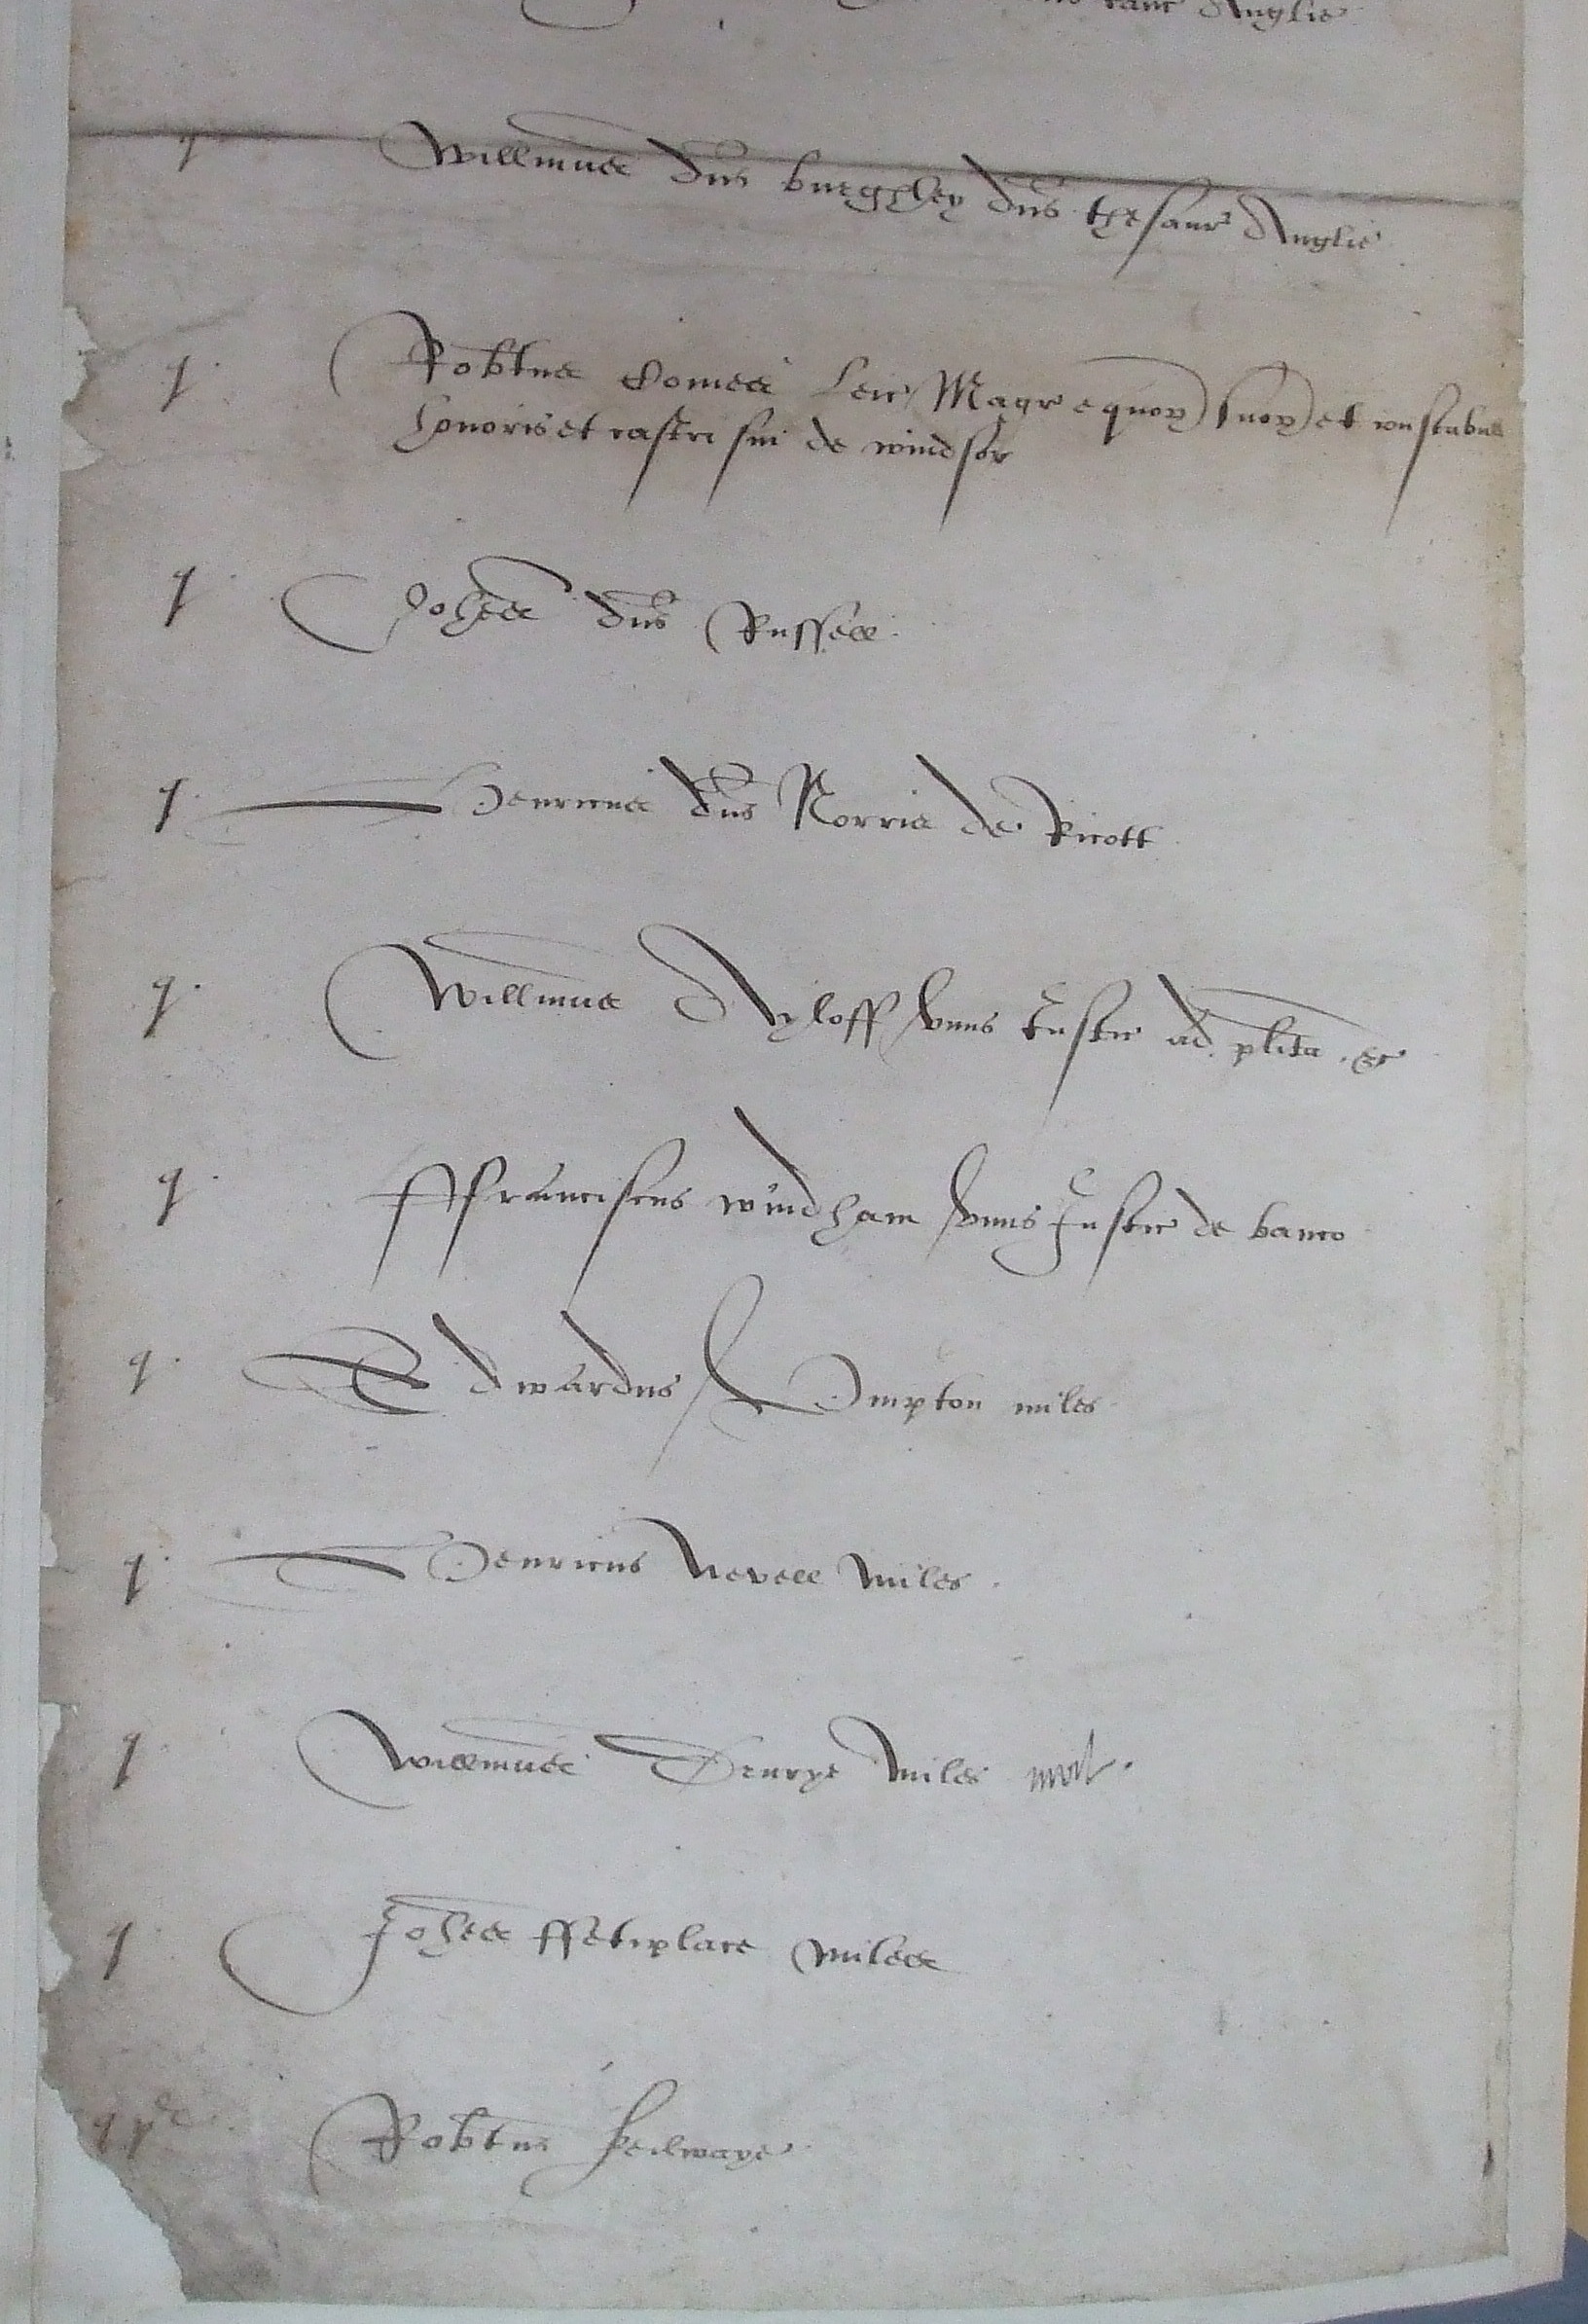 canc Anglie
q Willmus dns burghley dns thesaur Anglie
q. Robtus Comes Leic Magr equor suor et constabus
honoris et castri sui de windsor
q. Johes dns Russell.
q. Henricus dns Norris de Ricott
q. Willmus Ayloff unus Justic ad plita &c
q. ffranciscus windham unus Justic de banco
q. Edwardus Umpton miles
q. Henricus Nevell miles.
q Willmus Drurye miles mort.
q. Johes ffetiplace miles
q Robtus Keilwaye